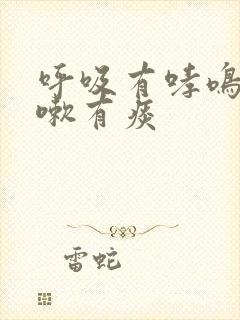 呼吸有哮鸣
嗽有痰
雷蛇